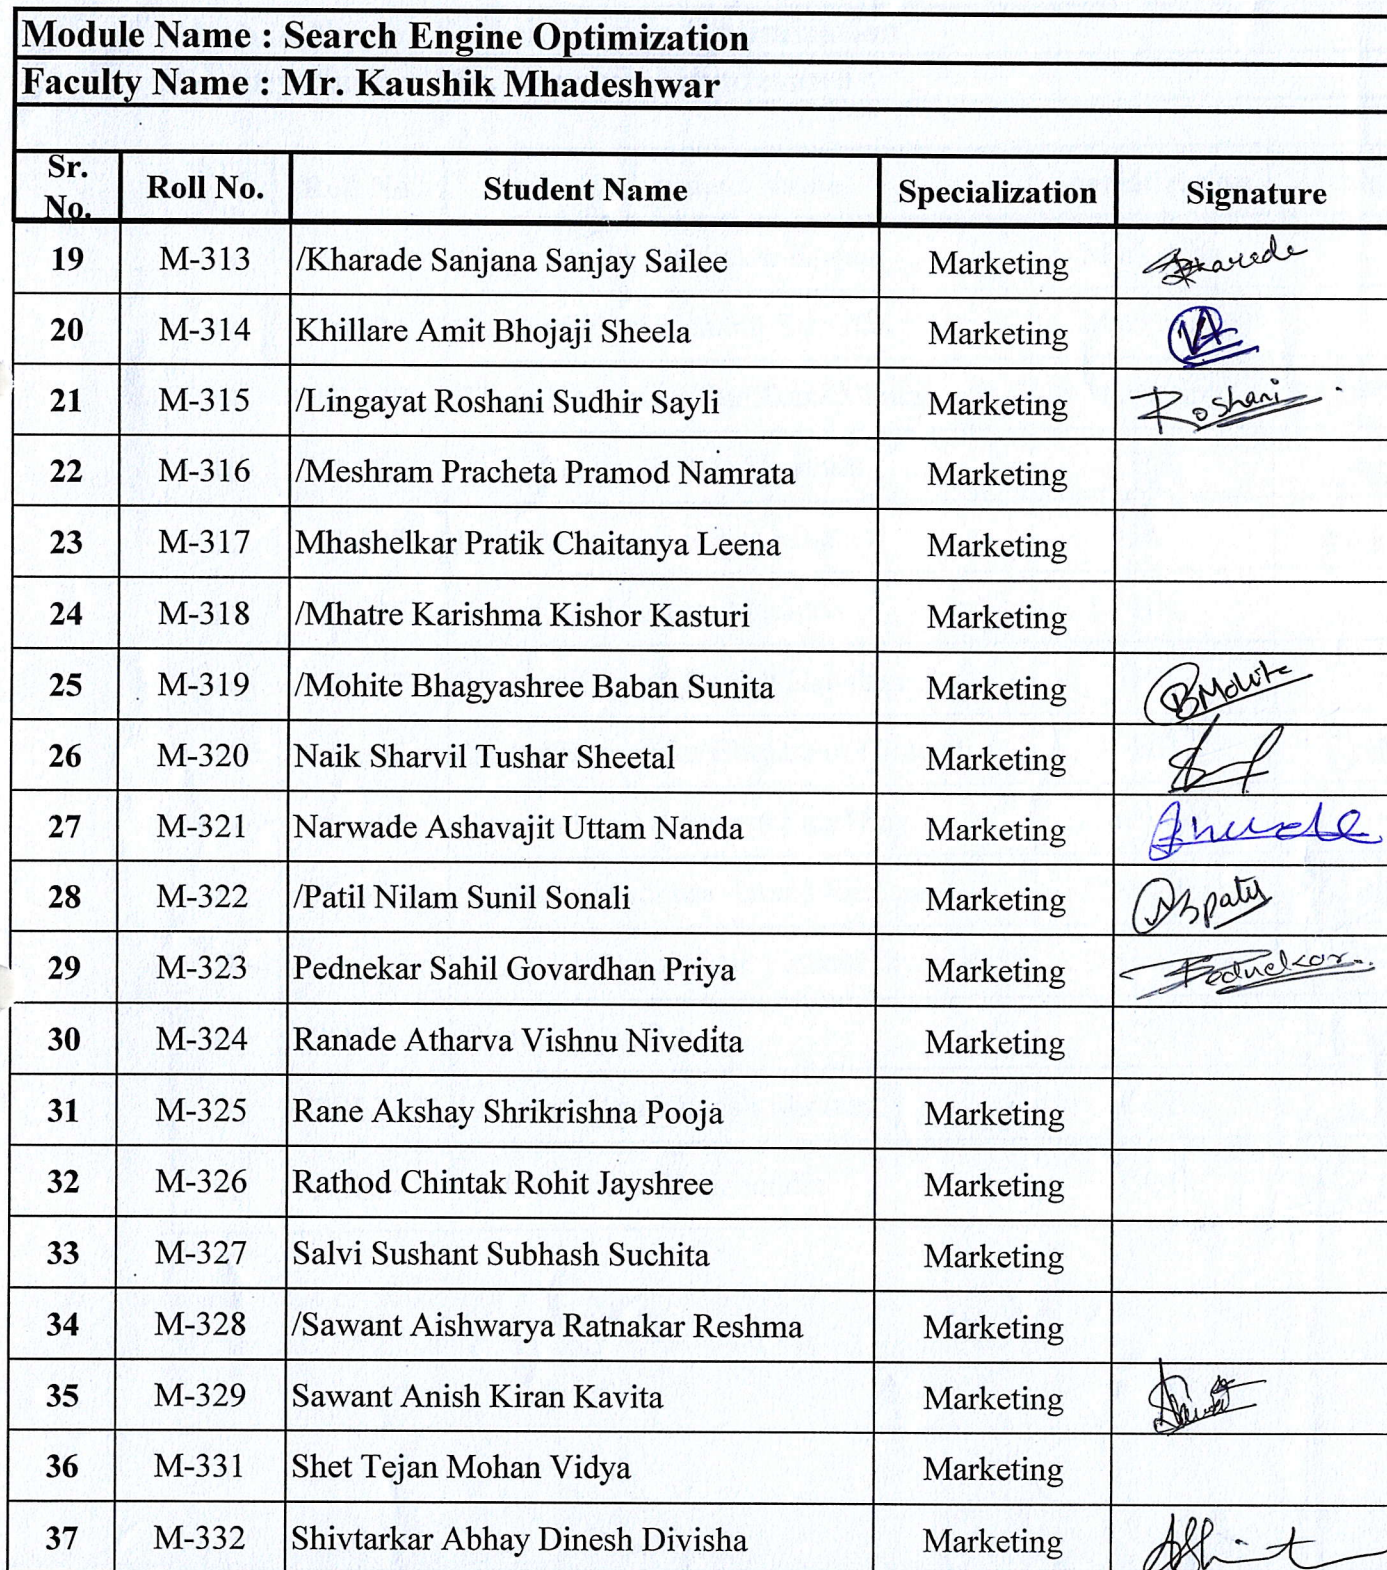 Module Name : Search Engine Optimization
Faculty Name : Mr. Kaushik Mhadeshwar
Sr. No. Roll No. Student Name Specialization Signature
19 M-313 /Kharade Sanjana Sanjay Sailee Marketing Kharade
20 M-314 Khillare Amit Bhojaji Sheela Marketing
21 M-315 /Lingayat Roshani Sudhir Sayli Marketing Roshani
22 M-316 /Meshram Pracheta Pramod Namrata Marketing
23 M-317 Mhashelkar Pratik Chaitanya Leena Marketing
24 M-318 /Mhatre Karishma Kishor Kasturi Marketing
25 M-319 /Mohite Bhagyashree Baban Sunita Marketing BMohite
26 M-320 Naik Sharvil Tushar Sheetal Marketing
27 M-321 Narwade Ashavajit Uttam Nanda Marketing
28 M-322 /Patil Nilam Sunil Sonali Marketing
29 M-323 Pednekar Sahil Govardhan Priya Marketing Pednekar
30 M-324 Ranade Atharva Vishnu Nivedita Marketing
31 M-325 Rane Akshay Shrikrishna Pooja Marketing
32 M-326 Rathod Chintak Rohit Jayshree Marketing
33 M-327 Salvi Sushant Subhash Suchita Marketing
34 M-328 /Sawant Aishwarya Ratnakar Reshma Marketing
35 M-329 Sawant Anish Kiran Kavita Marketing
36 M-331 Shet Tejan Mohan Vidya Marketing
37 M-332 Shivtarkar Abhay Dinesh Divisha Marketing